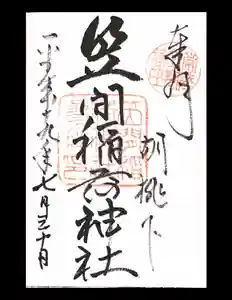 奉拝
胡桃下
笠間稲荷神社
平成十九年七月三十日